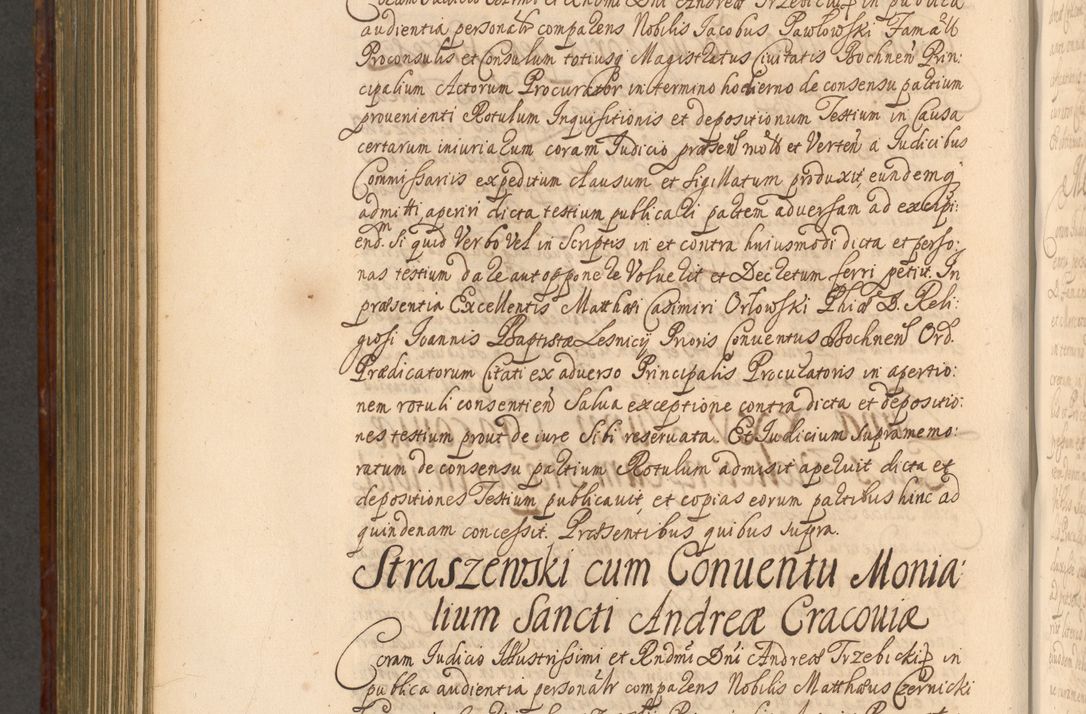 Coram Judicio Illmi et Rndmi Dni Andreæ Trzebicki in publica
audientia personalr comparens Nobilis Jacobus Pawlowski Famatt
Proconsulis et Consulum totiusq Magistratus Civitatis Bochnen Prin:
cipalium Actorum Procurator in termino hodierno de consensu partium
provenienti Rotulum Inquisitionis et depositionum Testium in Causa
certarum iniuriarum coram Judicio præsen mott et Verten a Judicibus
Commissariis expeditum clausum et sigillatum produxit, eundemq
admitti, aperiri dicta testium publicari partem adversam ad excipi:
end. Si quid Verbo Vel in Scriptis in et contra huiusmodi dicta et perso:
nas testium dare aut opponere Voluerit et Decretum ferri petiit. In
præsentia Excellentis Matthæi Casimiri Orlowski Phiæ D. Reli:
giosi Joannis Baptistæ Lesnicij Prioris Conventus Bochnen Ord.
Prædicatorum Citati ex adverso Principalis Procuratoris in apertio:
nem rotuli consentien Salva exceptione contra dicta et depositio:
nes testium prout de iure Sibi reservata. Et Judicium Supramemo:
ratum de consensu partium Rotulum admisit aperuit dicta et
depositiones Testium publicavit, et copias eorum partibus hinc ad
quindenam concessit. Præsentibus quibus supra.
Straszewski cum Conventu Monia:
lium Sancti Andreæ Cracoviæ
Coram Judicio Illustrissimi et Rndmi Dni Andreæ Trzebicki in
publica audientia personalr comparens Nobilis Matthæus Czernicki